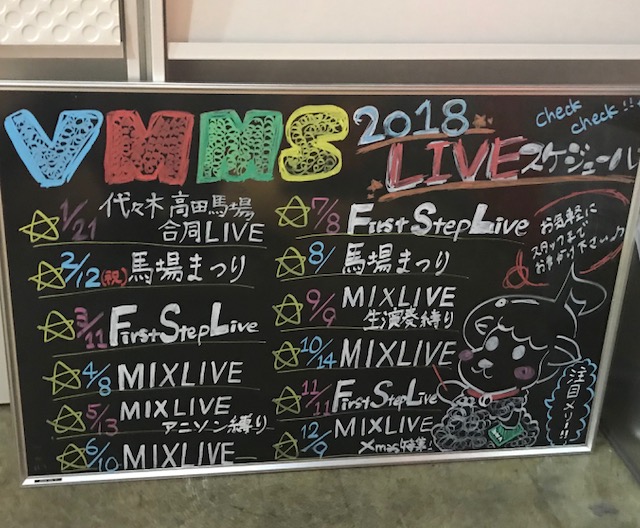 VMMS 2018
LIVEスケジュール
check
check!!
1/21 代々木 高田馬場
合同LIVE
2/12(祝) 馬場まつり
3/11 First Step Live
4/8 MIXLIVE
5/3 MIXLIVE
アニソン縛り
6/10 MIXLIVE
7/8 First Step Live
8/ 馬場まつり
9/9 MIXLIVE
生演奏縛り
10/14 MIXLIVE
11/11 First Step Live
12/9 MIXLIVE
Xmas特集!
お気軽に
スタッフまで
お声がけ下さい♪
注目